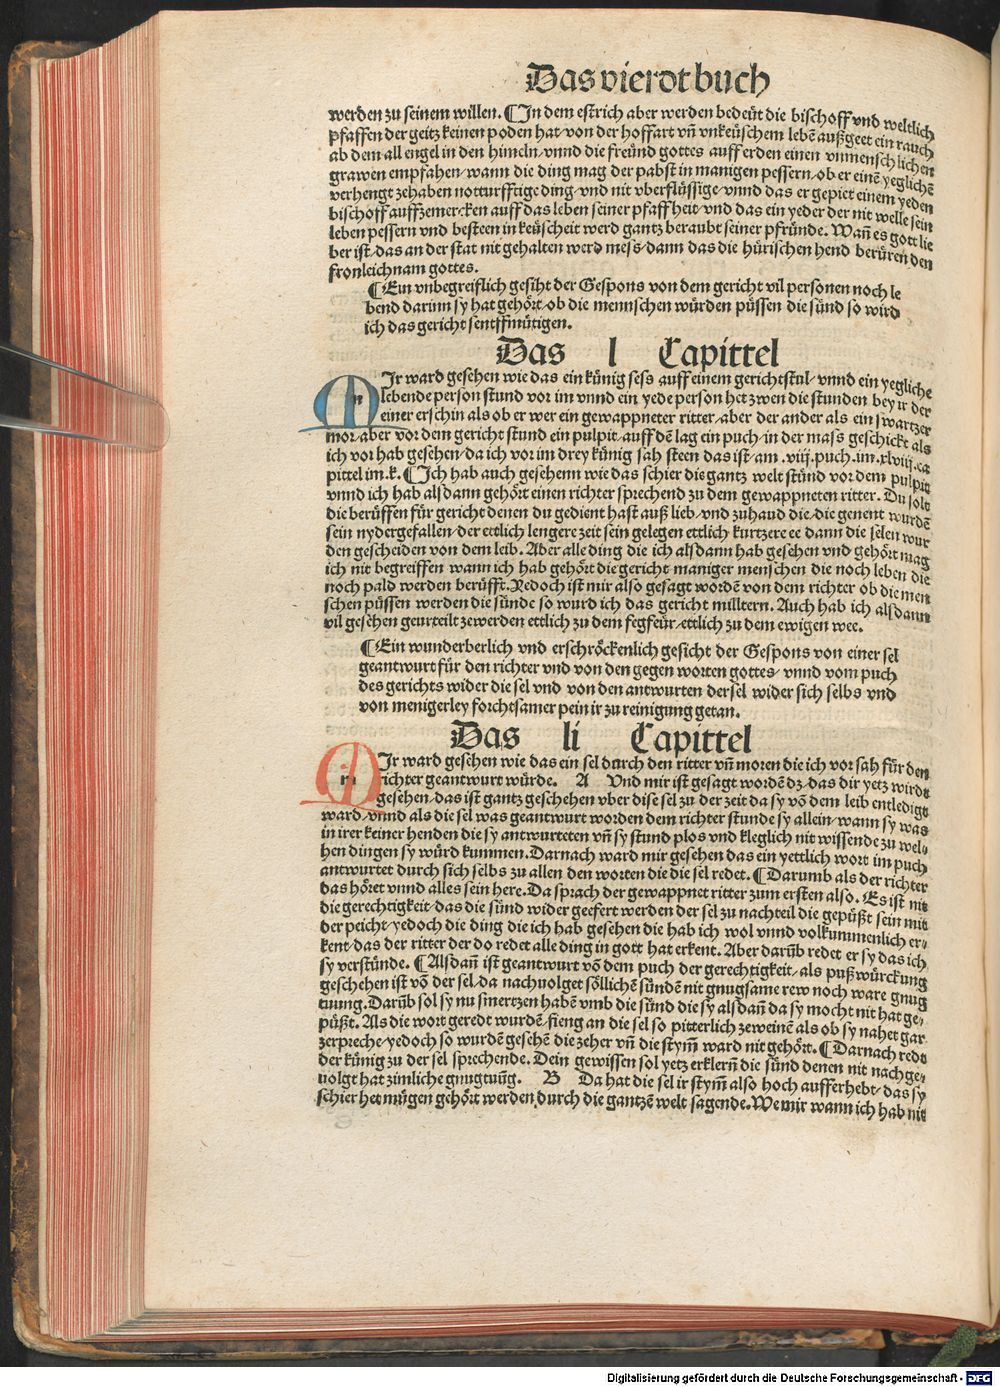 Das vierdt buch
werden zu seinem willen. ¶ In dem estrich aber werden bedeüt die bischoff vnd weltlich
pfaffen der geitz keinen poden hat/von der hoffart vñ vnkeüschem lebẽ außgeet ein rauch
ab dem all engel in den himeln/vnnd die freünd gottes auff erden einen vnmenschlichen
grawen empfahen/wann die ding mag der pabst in manigen pessern/ob er einẽ yeglichẽ
verhengt zehaben notturfftige ding/vnd nit vberflüssige/vnnd das er gepiet einem yeden
bischoff auffzemercken auff das leben seiner pfaffheit/vnd das ein yeder der nit welle sein
leben pessern vnd besteen in keüscheit werd gantz beraubt seiner pfründe. Wañ es gott lie
ber ist/das an der stat nit gehalten werd mess/dann das die hürischen hend berüren den
fronleichnam gottes.
¶ Ein vnbegreiflich gesiht der Gespons von dem gericht vil personen noch le
bend darinn sy hat gehört/ob die mennschen würden püssen die sünd so wird
ich das gericht senffmütigen.
Das l Capittel
MIr ward gesehen wie das ein künig sess auff einem gerichtstul/vnnd ein yegliche
lebende person stund vor im vnnd ein yede person het zwen die stunden bey ir der
einer erschin als ob er wer ein gewappneter ritter/aber der ander als ein swartzer
mor/aber vor dem gericht stund ein pulpit/auff dẽ lag ein puch/in der mass geschickt als
ich vor hab gesehen/da ich vor im drey künig sah steen das ist/am .viij. puch.im .xlviij. ca
pittel im .k. ¶ Ich hab auch gesehenn wie das schier die gantz welt stünd vor dem pulpit
vnnd ich hab alsdann gehört einen richter sprechend zu dem gewappneten ritter. Du solt
die berüffen für gericht denen du gedient hast auß lieb/vnd zuhand die/die genent wurdẽ
sein nydergefallen/der ettlich lengere zeit sein gelegen ettlich kurtzere ee dann die selen wur
den gescheiden von dem leib. Aber alle ding die ich alsdann hab gesehen vnd gehört mag
ich nit begreiffen wann ich hab gehört die gericht maniger menschen die noch leben die
noch pald werden berüfft. Yedoch ist mir also gesagt wordẽ von dem richter ob die men
schen püssen werden die sünde so wurd ich das gericht milltern. Auch hab ich alsdann
vil gesehen geurteilt zewerden ettlich zu dem fegfeür/ettlich zu dem ewigen wee.
¶ Ein wunderberlich vnd erschröckenlich gesicht der Gespons von einer sel
geantwurt für den richter vnd von den gegen worten gottes/vnnd vom puch
des gerichts wider die sel vnd von den antwurten der sel wider sich selbs vnd
von menigerley forchtsamer pein ir zu reinigung getan.
Das li Capittel
MIr ward gesehen wie das ein sel durch den ritter vñ moren die ich vor sah für den
richter geantwurt würde. A Vnd mir ist gesagt wordẽ dz/das dir yetz wirdt
gesehen/das ist gantz geschehen vber dise sel zu der zeit da sy võ dem leib entledigt
ward/vnnd als die sel was geantwurt worden dem richter stunde sy allein/wann sy was
in irer keiner henden die sy antwurteten vñ sy stund plos vnd kleglich nit wissende zu wel⸗
hen dingen sy würd kummen. Darnach ward mir gesehen das ein yettlich wort im puch
antwurtet durch sich selbs zu allen den worten die die sel redet. ¶ Darumb als der richter
das höret vnnd alles sein here. Da sprach der gewappnet ritter zum ersten also. Es ist nit
die gerechtigkeit/das die sünd wider geefert werden der sel zu nachteil die gepüßt sein mit
der peicht/yedoch die ding die ich hab gesehen die hab ich wol vnnd volkummenlich er⸗
kent/das der ritter der do redet alle ding in gott hat erkent. Aber darũb redet er sy das ich
sy verstünde. ¶ Alsdañ ist geantwurt võ dem puch der gerechtigkeit/als puß würckung
geschehen ist võ der sel/da nachuolget söllichẽ sündẽ nit gnugsame rew noch ware gnug
tuung. Darũb sol sy nu smertzen habẽ vmb die sünd die sy alsdañ da sy mocht nit hat ge⸗
püßt. Als die wort geredt wurdẽ/fieng an die sel so pitterlich zeweinẽ als ob sy nahet gar
zerpreche/yedoch so wurdẽ gesehẽ die zeher vñ die stym̃ ward nit gehört. ¶ Darnach redt
der künig zu der sel sprechende. Dein gewissen sol yetz erklern̄ die sünd denen nit nachge⸗
uolgt hat zimliche gnugtuũg. B Da hat die sel ir stym̃ also hoch aufferhebt/das sy
schier het mügen gehört werden durch die gantzẽ welt sagende. We mir wann ich hab nit
Digitalisierung gefördert durch die Deutsche Forschungsgemeinschaft - DFG